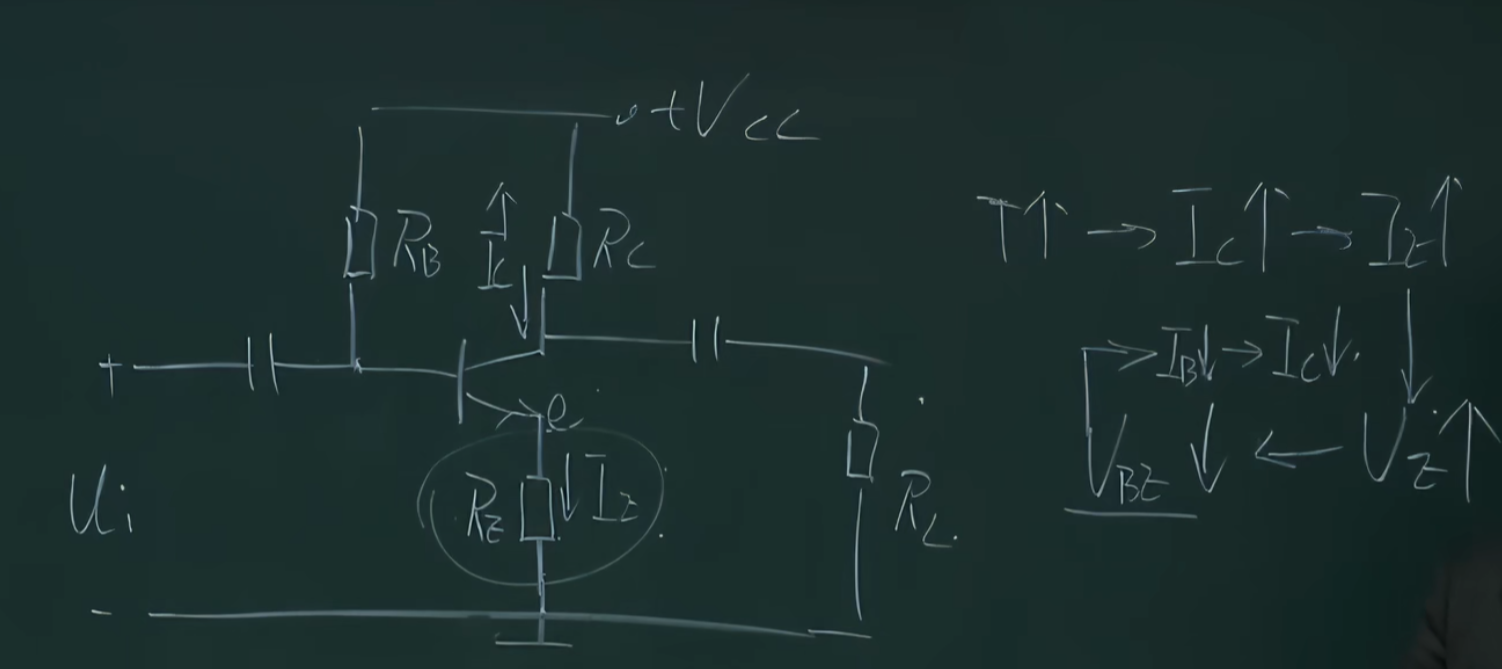 +VCC
RB
IC ↑
RC
+
e
Ui
RE
↓ IE
RL
-
T↑ → IC↑ → IE↑
↓
→ IB↓ → IC↓
VBE ↓ ← VE↑